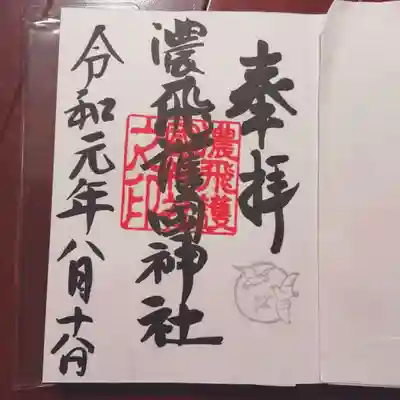 奉拝
濃飛護国神社
令和元年八月十日
濃飛護
國神社
之印